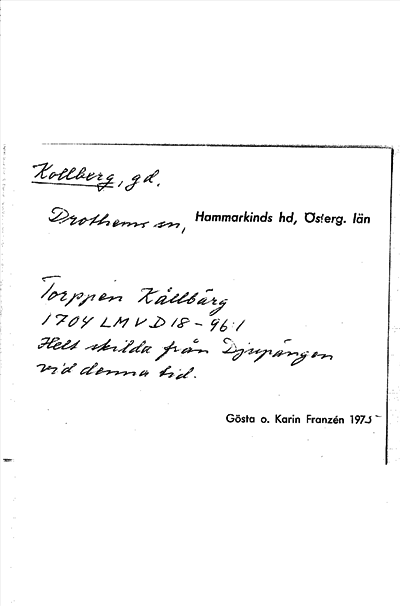 Kollberg, gd.
Drothems sn, Hammarkinds hd, Österg. län
Torppen Kållbärg
1704 LMV D18-96:1
Helt skilda från Djupängen
vid denna tid.
Gösta o. Karin Franzén 1975